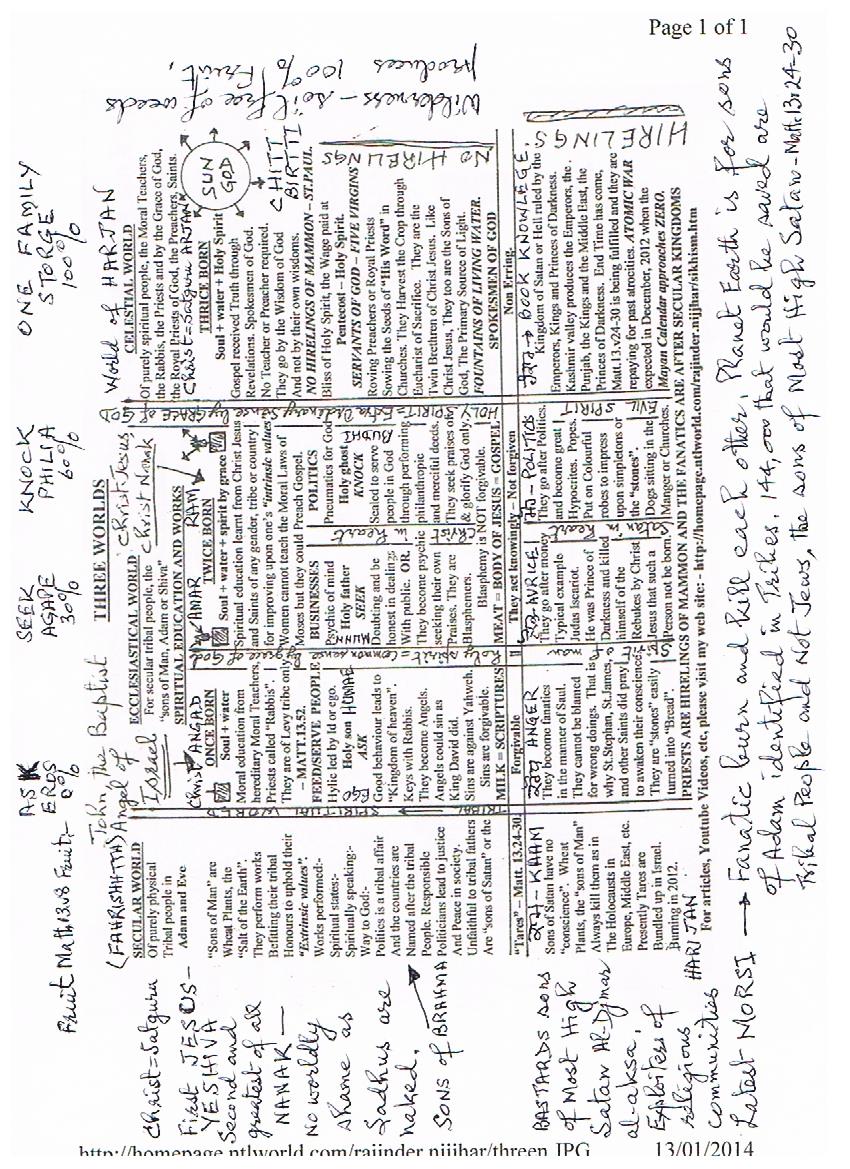 Page 1 of 1
Wilderness – soil free of weeds
produces 100% Fruit,
ONE FAMILY
STORGE
100%
KNOCK
PHILIA
60%
SEEK
AGAPE
30%
ASK
EROS
0%
Fruit Math13v8 Fruit:-
World of HARJAN
Christ Jesus
Christ Nanak
John the Baptist
(FAHRISHATTAS) Angel of
Israel
THREE WORLDS
SECULAR WORLD
Of purely physical
Tribal people in
Adam and Eve
"Sons of Man" are
Wheat Plants, the
"Salt of the Earth".
They perform works
Befitting their tribal
Honours to uphold their
"Extrinsic values".
Works performed:-
Spiritual states:-
Spiritually speaking:-
Way to God:-
Politics is a tribal affair
And the countries are
Named after the tribal
People. Responsible
Politicians lead to justice
And Peace in society.
Unfaithful to tribal fathers
Are "sons of Satan" or the
TRIBAL
SPIRITUAL WORLD
ECCLESIASTICAL WORLD
For secular tribal people, the
"sons of Man, Adam or Shiva"
SPIRITUAL EDUCATION AND WORKS
Christ ANGAD
ONCE BORN
Soul + water
Moral education from
hereditary Moral Teachers,
Priests called "Rabbis".
They are of Levy tribe only
– MATT.13.52.
FEED/SERVE PEOPLE
Hylic led by Id or ego.
Holy son HOMAE
EGO
ASK
Good behaviour leads to
"Kingdom of heaven".
Keys with Rabbis.
They become Angels.
Angels could sin as
King David did.
Sins are against Yahweh.
Sins are forgivable.
MILK = SCRIPTURES
Holy spirit = Common sense by grace of God
AMAR
RAM
TWICE BORN
Soul + water + spirit by grace
Spiritual education learnt from Christ Jesus
and Saints of any gender, tribe or country
for improving upon one's "intrinsic values"
Women cannot teach the Moral Laws of
Moses but they could Preach Gospel.
BUSINESSES
Psychic of mind
Holy father
SEEK
Doubting and be
honest in dealings
With public. OR,
They become psychic
seeking their own
Praises. They are
Blasphemers.
Christ in heart
POLITICS
Pneumatics for God
Holy ghost
BUDHI
KNOCK
Sealed to serve
people in God
through performing
philanthropic
and merciful deeds.
They seek praises of
& glorify God only.
Blasphemy is NOT forgivable.
MEAT = BODY OF JESUS = GOSPEL
CELESTIAL WORLD
Of purely spiritual people, the Moral Teachers,
the Rabbis, the Priests and by the Grace of God,
the Royal Priests of God, the Preachers, Saints.
Christ=Satguru ARJAN
SUN
GOD
THRICE BORN
Soul + water + Holy Spirit
Gospel received Truth through
Revelations. Spokesmen of God.
No Teacher or Preacher required.
They go by the Wisdom of God
And not by their own wisdoms.
CHITT
BIRTTI
NO HIRELINGS OF MAMMON – ST.PAUL.
Bliss of Holy Spirit, the Wage paid at
Pentecost – Holy Spirit.
SERVANTS OF GOD – FIVE VIRGINS
Roving Preachers or Royal Priests
Sowing the Seeds of "His Word" in
Churches. They Harvest the Crop through
Eucharist of Sacrifice. They are the
Twin Brethren of Christ Jesus. Like
Christ Jesus, They too are the Sons of
God, The Primary Source of Light.
FOUNTAINS OF LIVING WATER.
SPOKESMEN OF GOD
NO HIRELINGS
"Tares" – Matt. 13.24-30
KAAM
Sons of Satan have no
"conscience". Wheat
Plants, the "sons of Man"
Always kill them as in
The Holocausts in
Europe, Middle East, etc.
Presently Tares are
Bundled up in Israel.
Burning in 2012.
Forgivable
ANGER
They become fanatics
in the manner of Saul.
They cannot be blamed
for wrong doings. That is
why St.Stephan, St.James,
and other Saints did pray
to awaken their conscience.
They are "stones" easily
turned into "Bread".
They act knowingly – Not forgiven
AVRICE
They go after money
Typical example
Judas Iscariot.
He was Prince of
Darkness and killed
himself of the
Rebukes by Christ
Jesus that such a
Person not be born.
Satan in heart
POLITICS
They go after Politics,
and become great
Hypocrites. Popes.
Put on Colourful
robes to impress
upon simpletons or
the "stones".
Dogs sitting in the
Manger or Churches.
EVIL SPIRIT
Non Erring.
BOOK KNOWLEGE.
Kingdom of Satan or Hell ruled by the
Emperors, Kings and Princes of Darkness.
Kashmir valley produces the Emperors, the
Punjab, the Kings and the Middle East, the
Princes of Darkness. End Time has come,
Matt.13.v24-30 is being fulfilled and they are
repaying for past atrocities. ATOMIC WAR
expected in December, 2012 when the
Mayan Calendar approaches ZERO.
HIRELINGS
PRIESTS ARE HIRELINGS OF MAMMON AND THE FANATICS ARE AFTER SECULAR KINGDOMS
For articles, Youtube Videos, etc, please visit my web site: - http://homepage.ntlworld.com/rajinder.nijjhar/sikhism.htm
Christ=Satguru
First JESUS –
YESHIVA
Second and
greatest of all
NANAK —
No worldly
shame as
Sadhus are
naked.
SONS OF BRAHMA
BASTARDS sons
of Most High
Satan Al-Djmar
al-aksa,
Exploiters of
religious HARIJAN
communities
Latest MORSI → Fanatic burn and kill each other. Planet Earth is for sons
of Adam identified in Tribes. 144,000 that would be saved are
Tribal People and Not Jews, the sons of Most High Satan – Math.13v24-30
http://homepage.ntlworld.com/rajinder.nijjhar/threen.JPG
13/01/2014